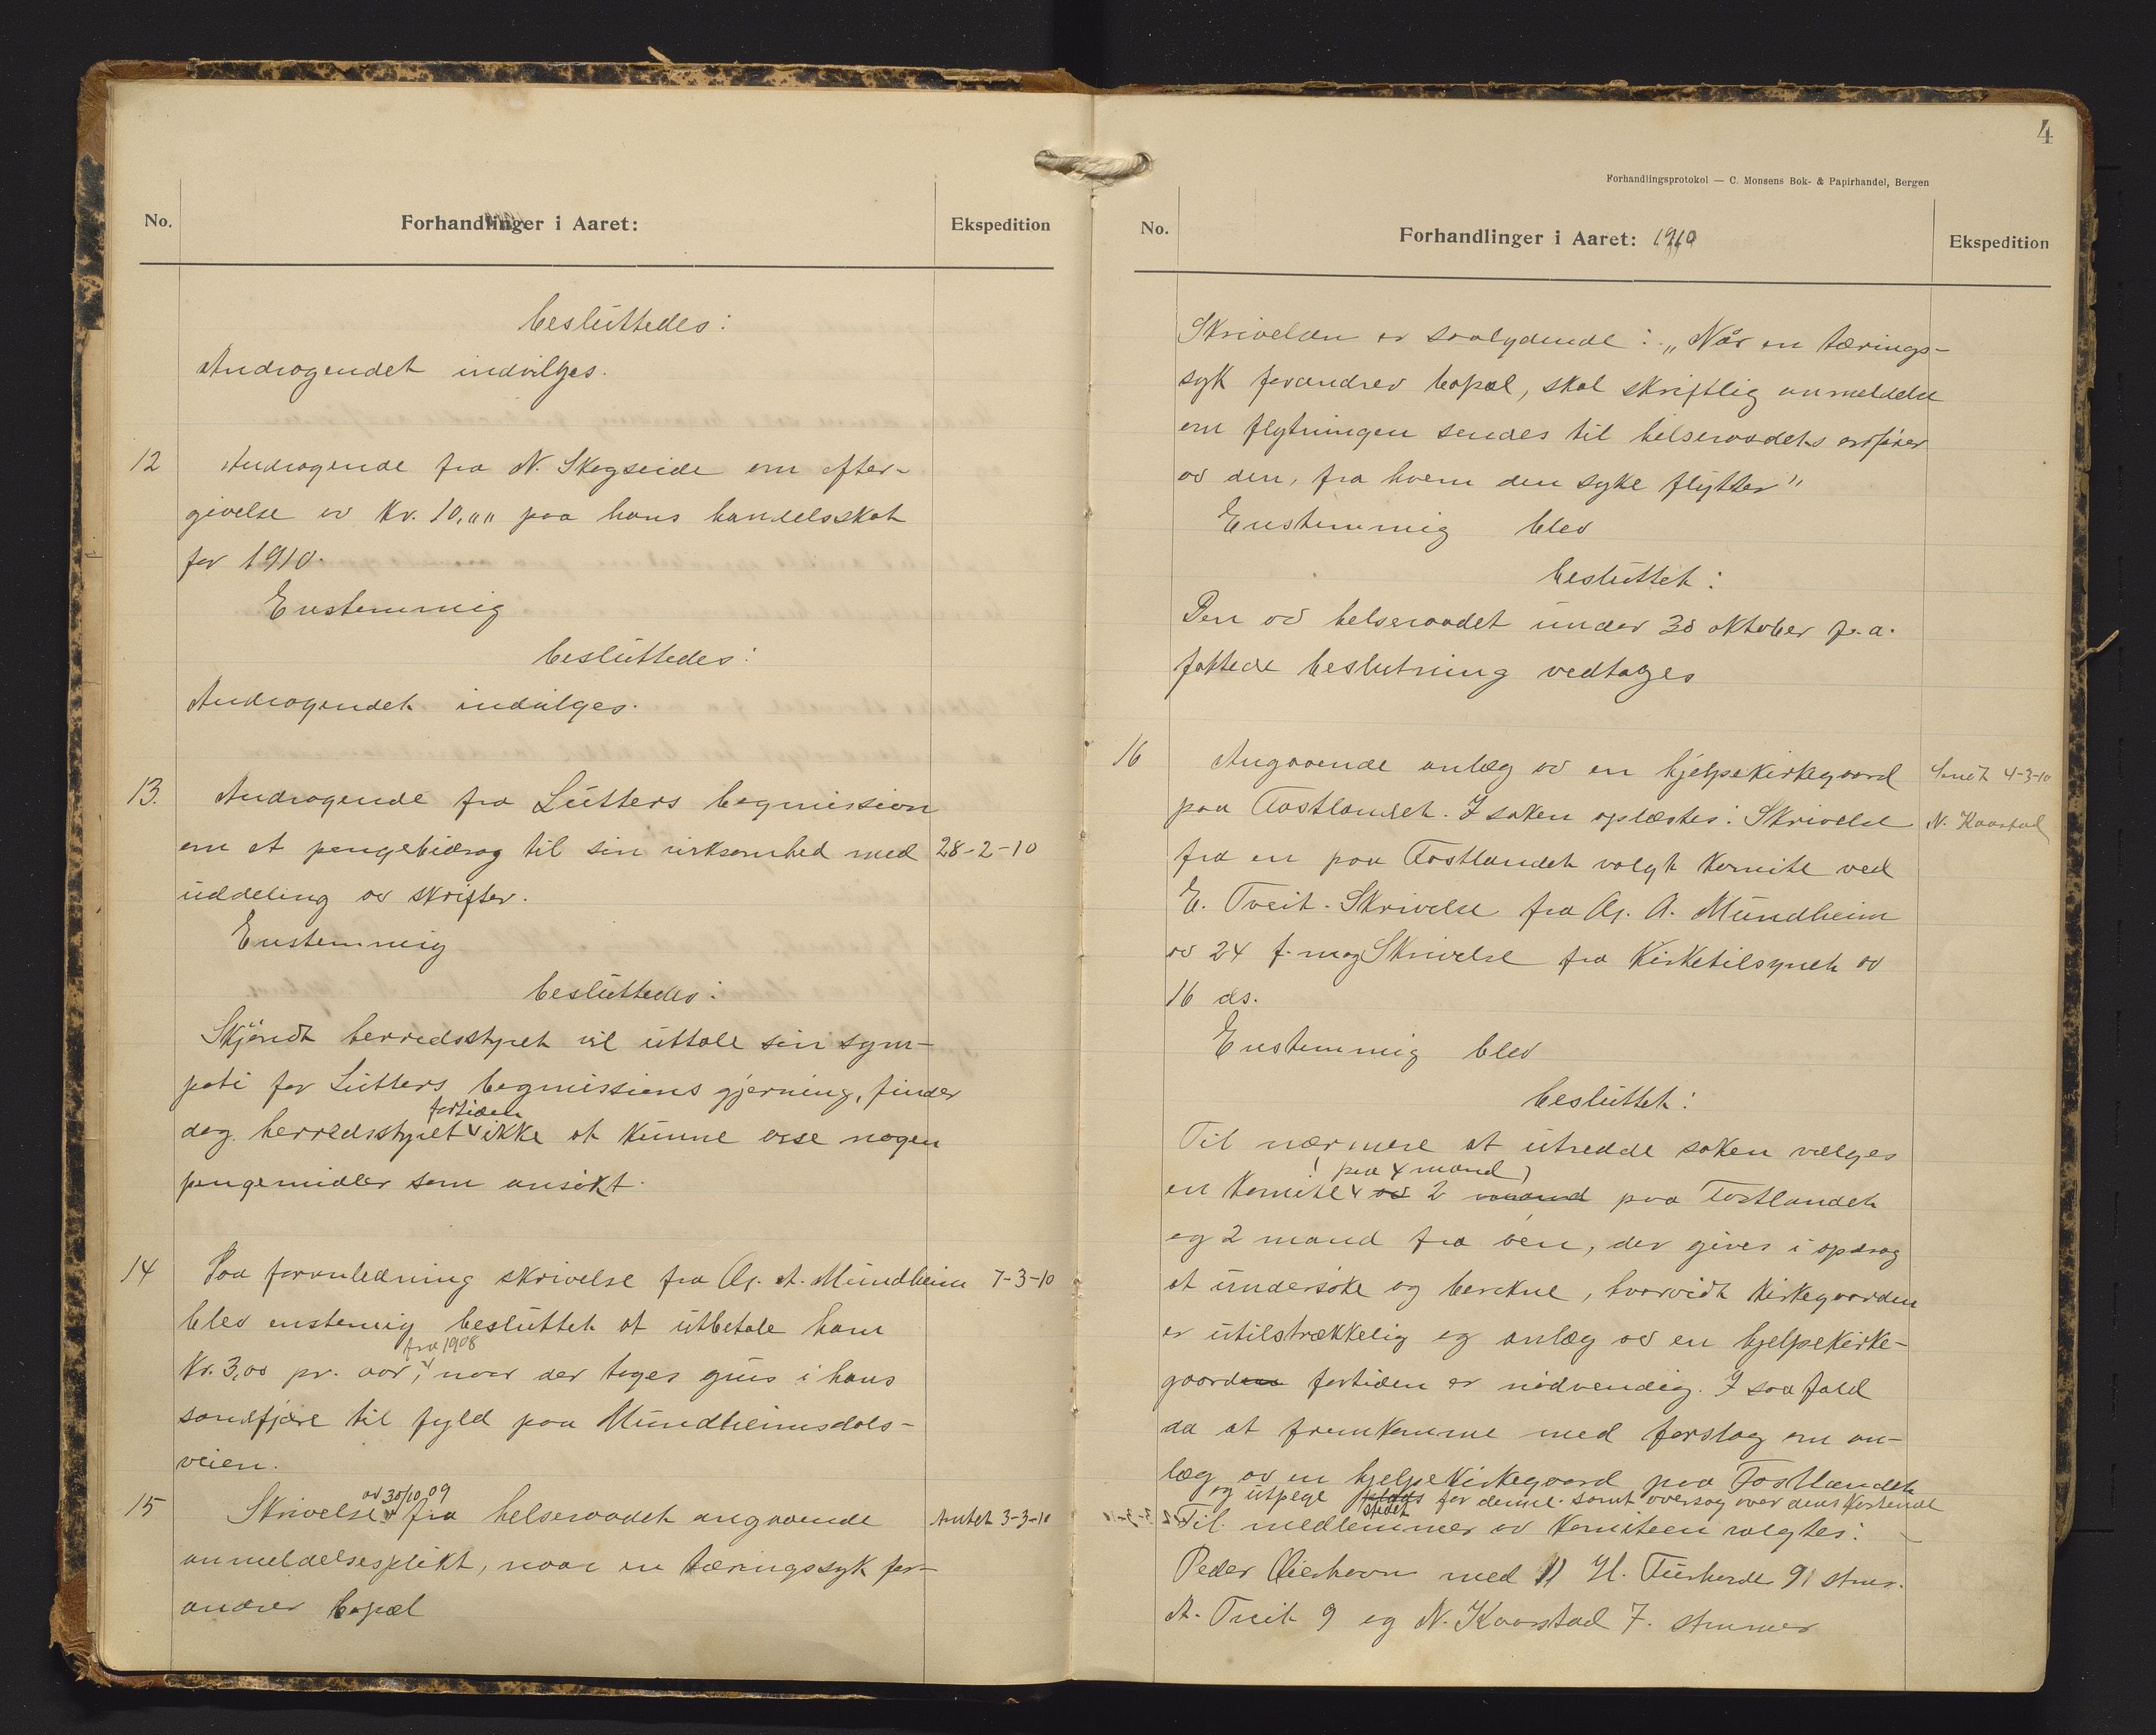 No.
Forhandlinger i Aaret:
Ekspedition
besluttedes:
Andragendet indvilges.
12 Andragende fra N. Skogseide om efter-
givelse av Kr. 10,"" paa hans handelsskat
for 1910.
Enstemmig
besluttedes:
Andragendet indvilges.
13. Andragende fra Lutters bogmission
om et pengebidrag til sin virksomhed med 28-2-10
uddeling av skrifter.
Enstemmig
besluttedes:
Skjøndt herredsstyret vil uttale sin sym-
pati for Lutters bogmissions gjerning, finder
fortiden
dog herredsstyret ikke at kunne avse nogen
pengemidler som ansøkt.
14 Paa foranledning skrivelse fra A. Mundheim 7-3-10
blev enstemig besluttet at utbetale ham
fra 1908
Kr. 3,00 pr. aar, naar der tages grus i hans
sandfjære til fyld paa Mundheimsdals-
veien.
av 30/10 09
15 Skrivelse fra helseraadet angaaende Antet 3-3-10
anmeldelsesplikt, naar en tæringssyk for-
andrer bopæl
4
Forhandlingsprotokol — C. Monsens Bok- & Papirhandel, Bergen
No.
Forhandlinger i Aaret: 1910
Ekspedition
Skrivelsen er saalydende: "Når en tærings-
syk forandrer bopæl, skal skriftlig anmeldelse
om flytningen sendes til helseraadets ordfører
av den, fra hvem den syke flytter"
Enstemmig blev
besluttet:
Den av helseraadet under 30 oktober f. a.
fattede beslutning vedtages
16 Angaaende anlæg av en hjelpekirkegaard Sendt 4-3-10
paa Tostlandet. I saken oplæstes: Skrivelse N. Kaarstad
fra en paa Tostlandet valgt komite ved
E. Tveit. Skrivelse fra A. Mundheim
av 24 f. m og Skrivelse fra Kirketilsynet av
16 ds.
Enstemmig blev
besluttet:
Til nærmere at utrede saken vælges
(paa 4 mand)
en komite av 2 mand paa Tostlandet
og 2 mand fra øen, der gives i opdrag
at undersøke og berekne, hvorvidt kirkegaarden
er utilstrækkelig og anlæg av en hjelpekirke-
gaarden fortiden er nødvendig. I saa fald
da at fremkomme med forslag om an-
læg av en hjelpekirkegaard paa Tostlandet
og utpege plads stedet for denne. samt overslag over dens kostende
Til medlemmer av komiteen valgtes:
Peder med 11 H. 9 stmr.
A. Tveit 9 og N. Kaarstad 7. stemmer